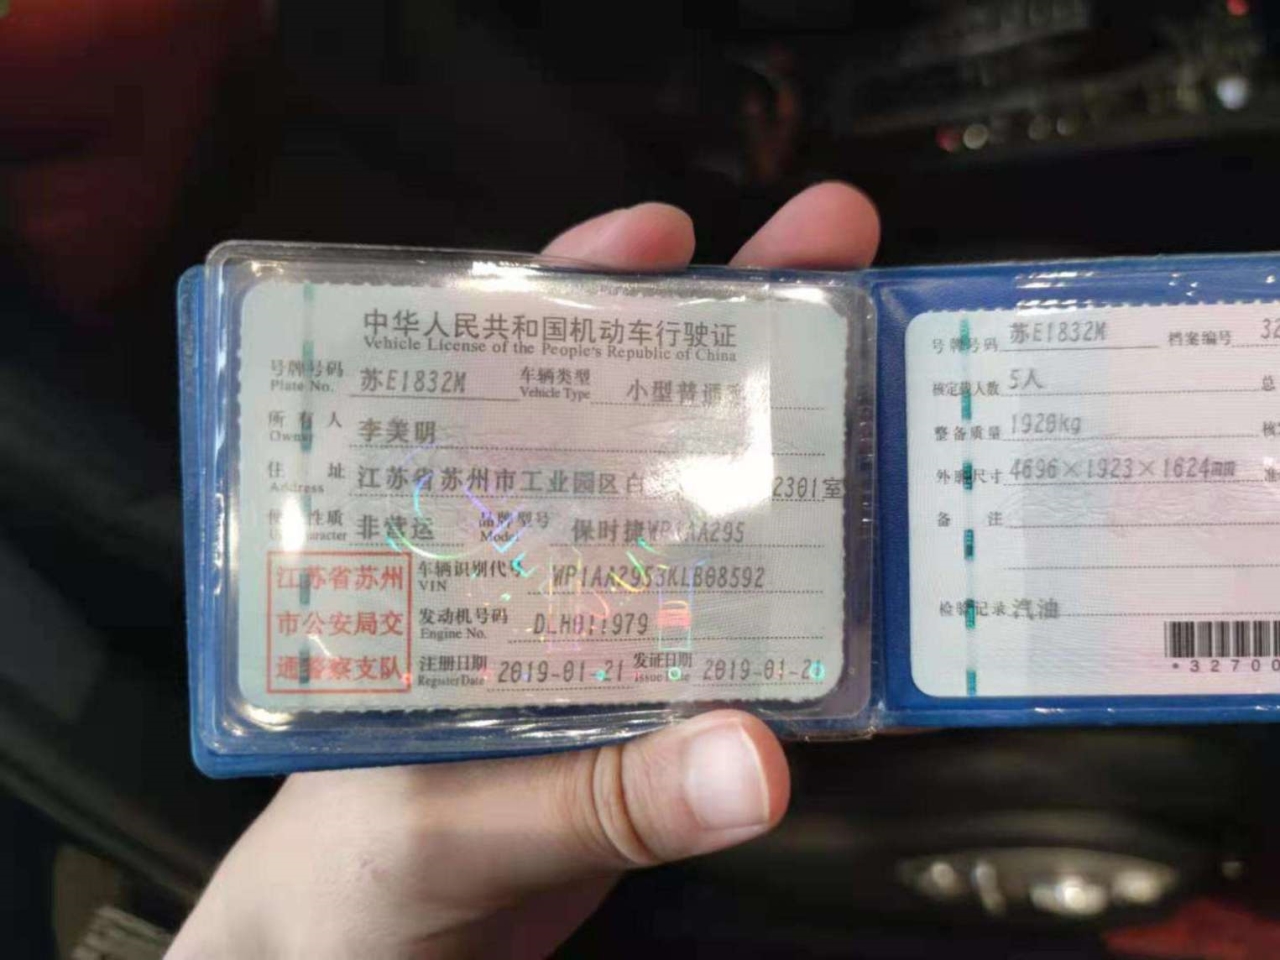 中华人民共和国机动车行驶证
Vehicle License of the People's Republic of China
号牌号码 苏E1832M 车辆类型 小型普通
Plate No. Vehicle Type
所有人 李美明
Owner
住址 江苏省苏州市工业园区白 2301室
Address
使用性质 非营运 品牌型号 保时捷WP1AA295
Character Model
江苏省苏州
市公安局交
通警察支队
车辆识别代号 WP1AA2953KLB08592
VIN
发动机号码 DLH011979
Engine No.
注册日期 2019-01-21 发证日期 2019-01-21
Register Date Issue Date
号牌号码 苏E1832M 档案编号 32
核定载人数 5人 总
整备质量 1920kg 核
外廓尺寸 4696×1923×1624mm 准
备注
检验记录 汽油
*32700